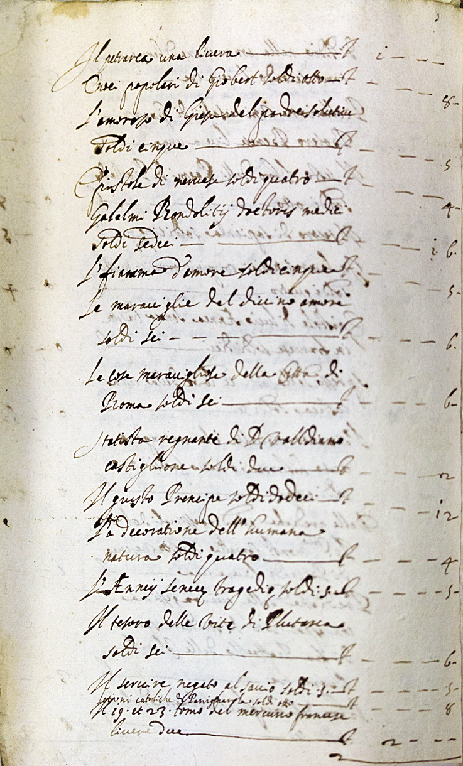 Il petrarca una livera £ 1 - - -
Omei popolari di Gisbert soldi otto £ - - 8 -
L'amoroso di
soldi cinque £ - - 5
Epistole di soldi quatro £ - - 4
Gulelmi Rondolitij doctoris medic
soldi sedeci £ - - 16
L'fiamma d'amore soldi cinque £ - - 5 -
Le maraviglie del divino amore
soldi sei - - £ - - 6
Le cose maravigliose della Città di
Roma soldi sei £ - - 6 -
Statista regnante di D Valeriano
castiglione soldi due £ - - 2
Il giusto Prencipe soldi dodeci £ - - 12
La decoratione dell'humana
natura soldi quatro £ - - 4
L'Annij senecę tragedię soldi 5 £ - - 5 -
Il tesoro delle vite di Plutarco
soldi sei £ - - 6 -
Il servire negato al savio soldi 5 £ - - 5
soldi otto 8
Il 19. et 23. tomo del mercurio francese
livere due £ 2 - -